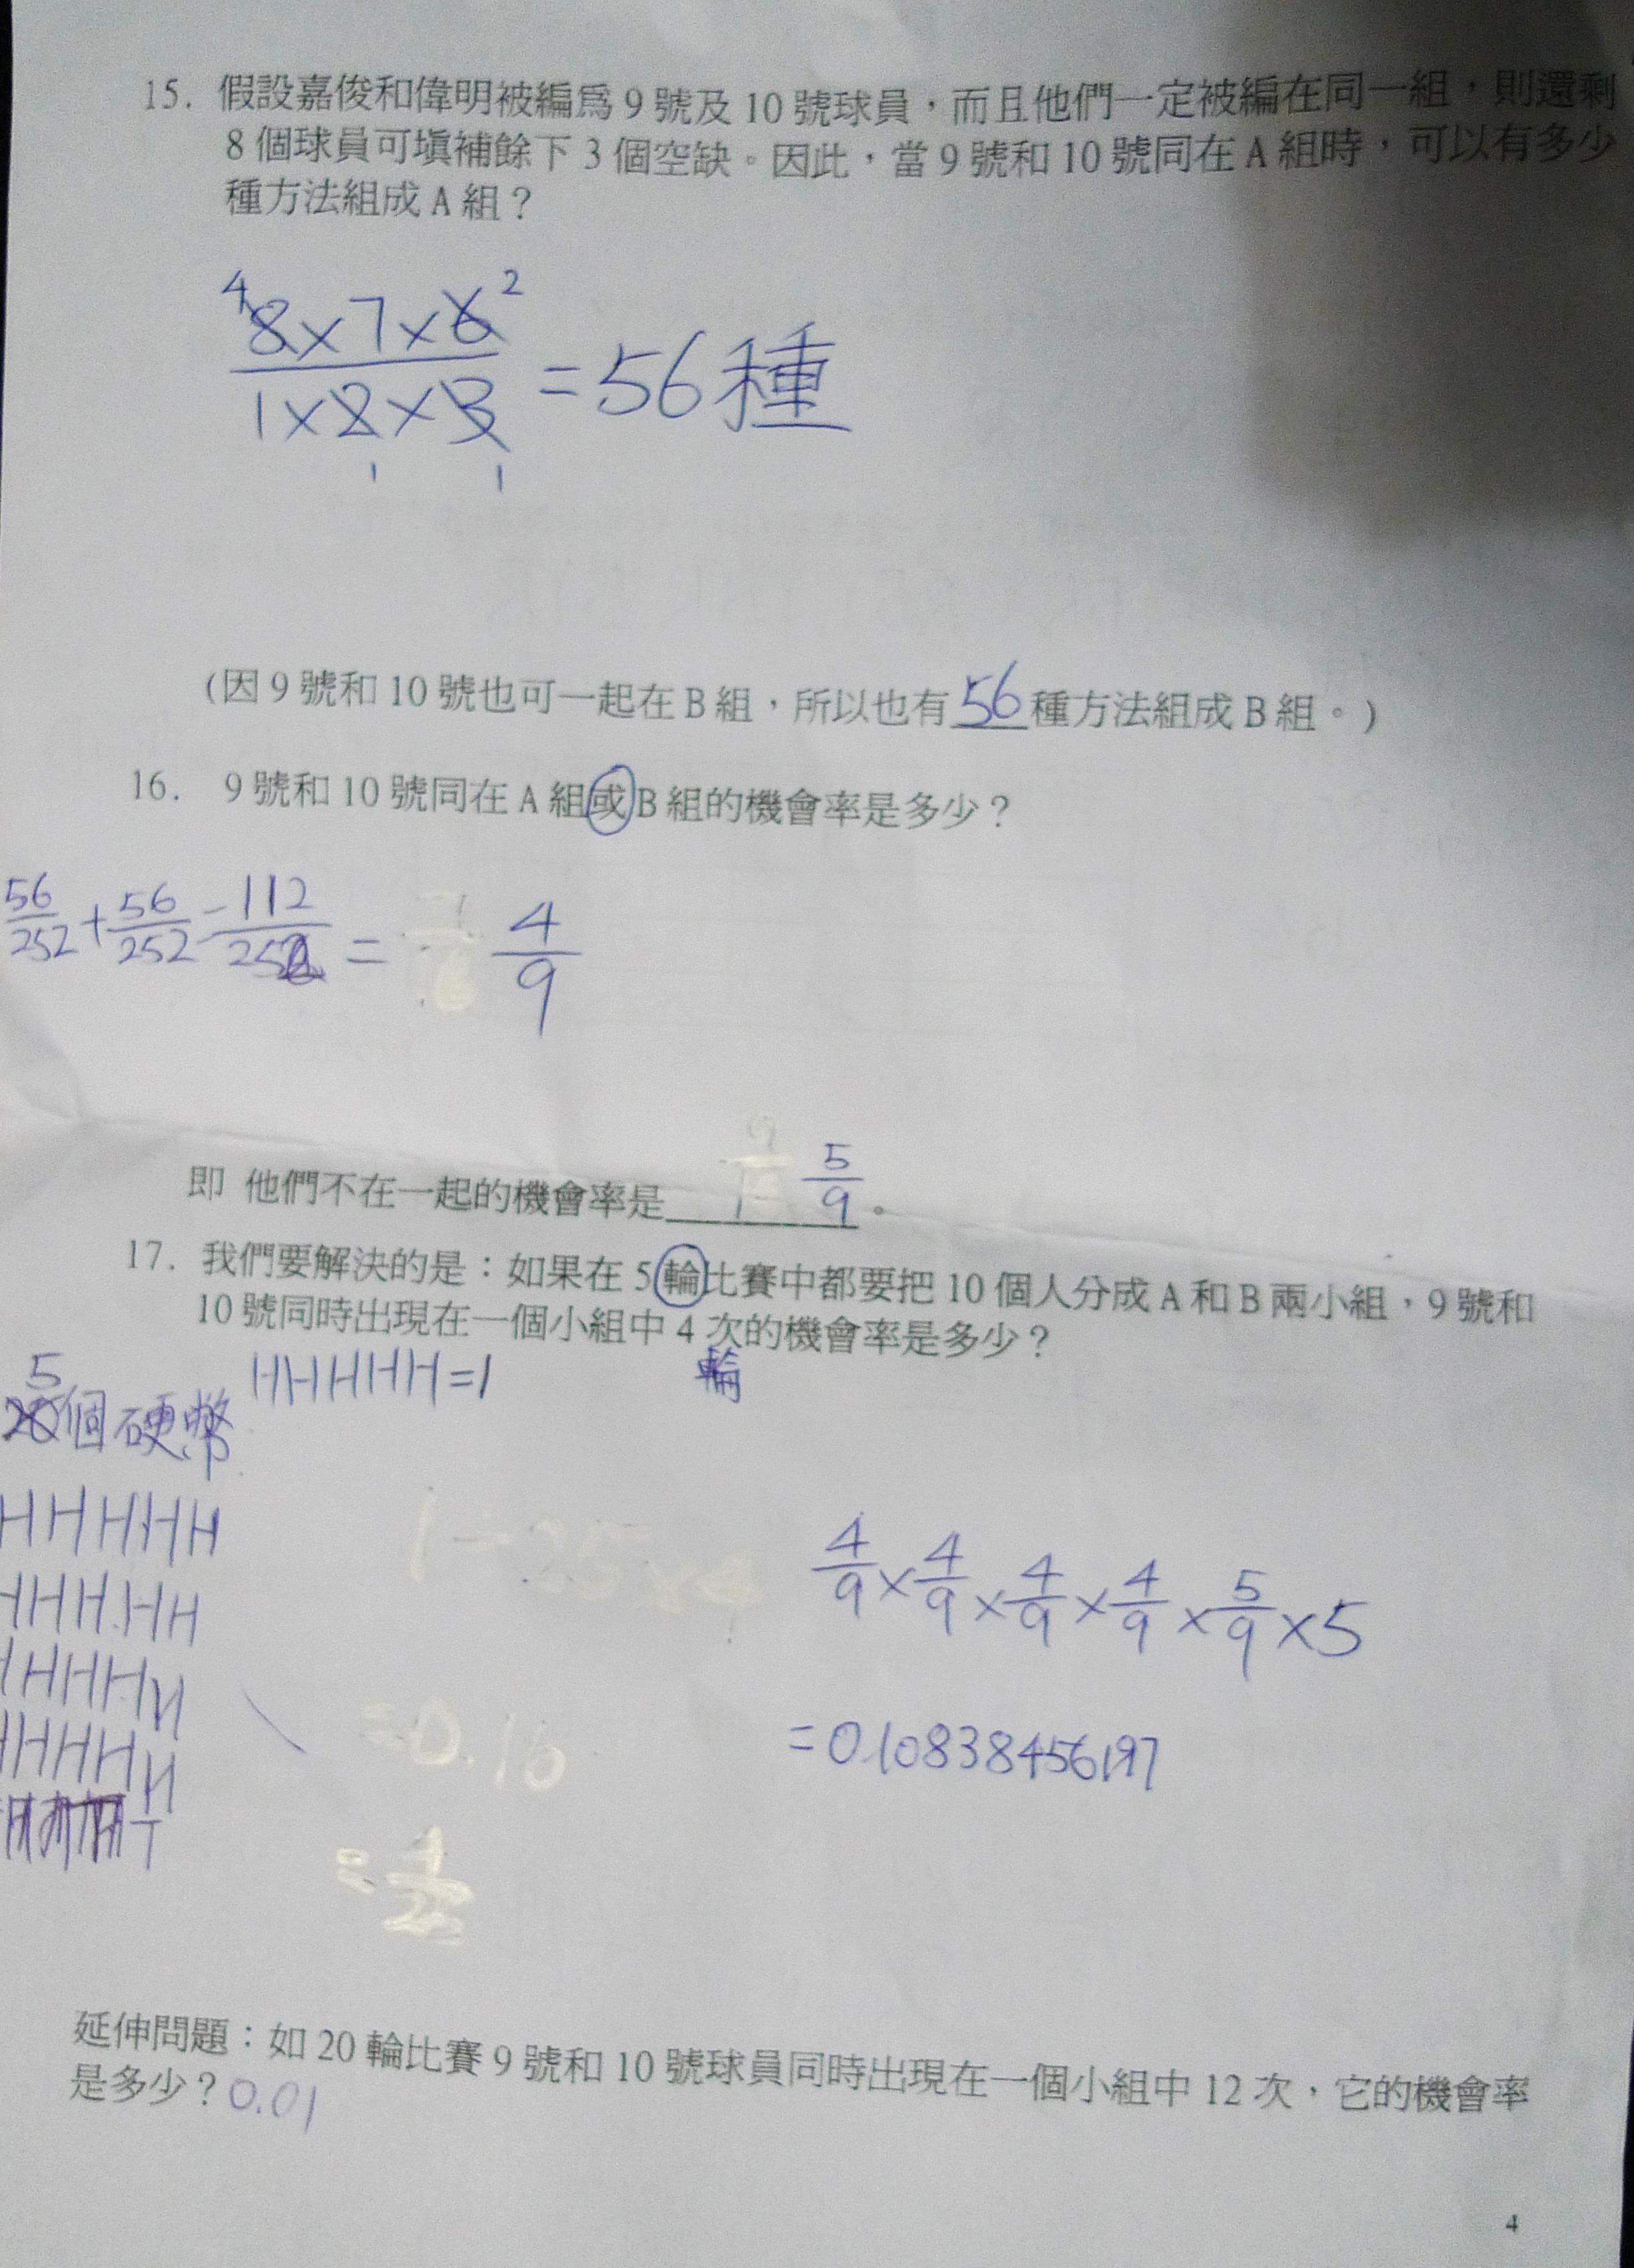 15. 假設嘉俊和偉明被編為 9 號及 10 號球員，而且他們一定被編在同一組，則還剩
8 個球員可填補餘下 3 個空缺。因此，當 9 號和 10 號同在 A 組時，可以有多少
種方法組成 A 組？
4 2
8×7×6
1×2×3
= 56 種
1 1
(因 9 號和 10 號也可一起在 B 組，所以也有 56 種方法組成 B 組。)
16. 9 號和 10 號同在 A 組或 B 組的機會率是多少？
56/252 + 56/252 = 112/252 = 4/9
即 他們不在一起的機會率是 5/9 。
17. 我們要解決的是：如果在 5 輪比賽中都要把 10 個人分成 A 和 B 兩小組，9 號和
10 號同時出現在一個小組中 4 次的機會率是多少？
HHHHH=1 輪
5
20個硬幣
HHHHH
HHHHH
HHHHH
HHHHH
T
1÷25×4
=0.16
4/9 × 4/9 × 4/9 × 4/9 × 5/9 × 5
=0.10838456197
延伸問題：如 20 輪比賽 9 號和 10 號球員同時出現在一個小組中 12 次，它的機會率
是多少？0.01
4